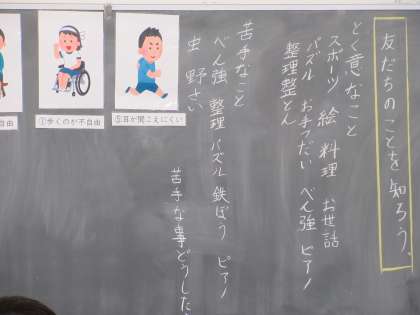 友だちのことを知ろう。
とく意なこと
スポーツ 絵 料理 お世話
パズル お手つだい べん強 ピアノ
整理整とん
苦手なこと
べん強 整理 パズル 鉄ぼう ピアノ
虫 野さい
苦手な事どうした
⑤耳が聞こえにくい
①歩くのが不自由
自由